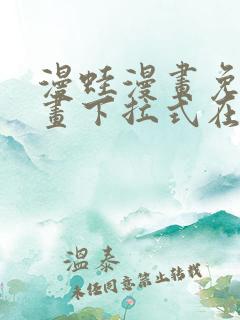 漫蛙漫畫免
畫下拉式在
溫泰
未经同意禁止转载